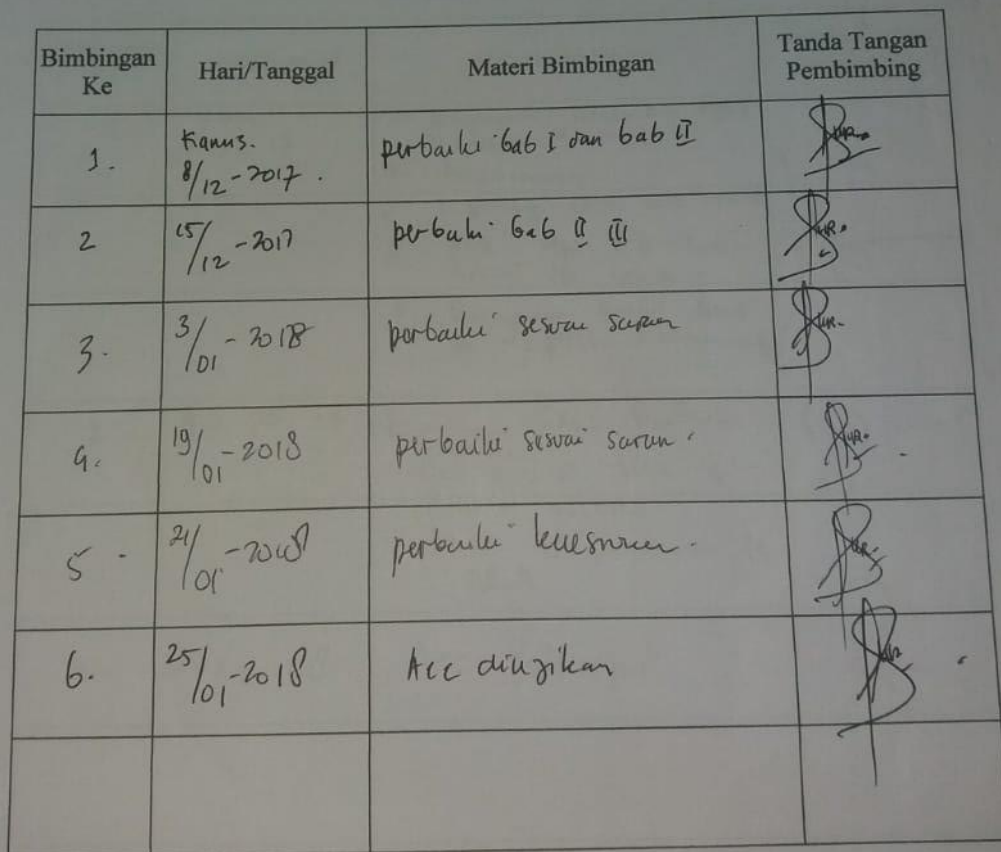 Bimbingan Ke
Hari/Tanggal
Materi Bimbingan
Tanda Tangan Pembimbing
1.
Kamis.
8/12-2017.
perbaiki bab I dan bab II
2
15/12-2017
perbaiki bab II III
3.
3/01-2018
perbaiki sesuai saran
4.
19/01-2018
perbaiki sesuai saran.
5
21/01-2018
perbaiki kuesioner.
6.
25/01-2018
Acc diujikan